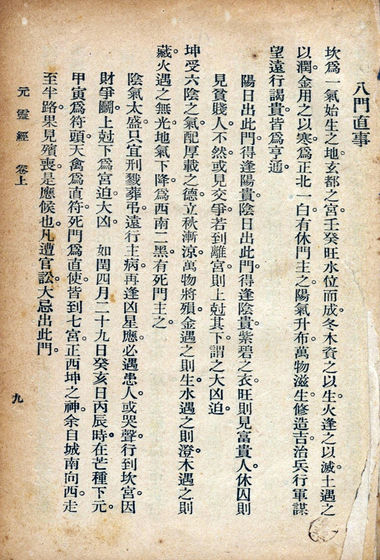 八門直事
坎爲一氣始生之地玄都之宮壬癸旺水位而成冬木資之以生火逢之以滅土遇之
以潤金用之以寒爲正北一白有休門主之陽氣升布萬物滋生修造吉治兵行軍謀
望遠行謁貴皆爲亨通
陽日出此門得逢陽貴陰日出此門得逢陰貴紫碧之衣旺則見富貴人休囚則
見貧賤人不然或見交爭若到離宮則上尅其下謂之大凶迫
坤受六陰之氣配厚載之德立秋漸涼萬物將殞金遇之則生水遇之則澄木遇之則
藏火遇之無光地气下降爲西南二黑有死門主之
陰氣太盛只宜刑戮葬弔遠行主病再逢凶星應必遇患人或哭聲行到坎宮因
財爭鬭上尅下爲宮迫大凶 如閏四月二十九日癸亥日丙辰時在芒種下元
甲寅爲符頭天禽爲直符死門爲直使皆到七宮正西坤之神余自城南向西走
至半路果見殯喪是應候也凡遭官訟大忌出此門
元靈經 卷上
九